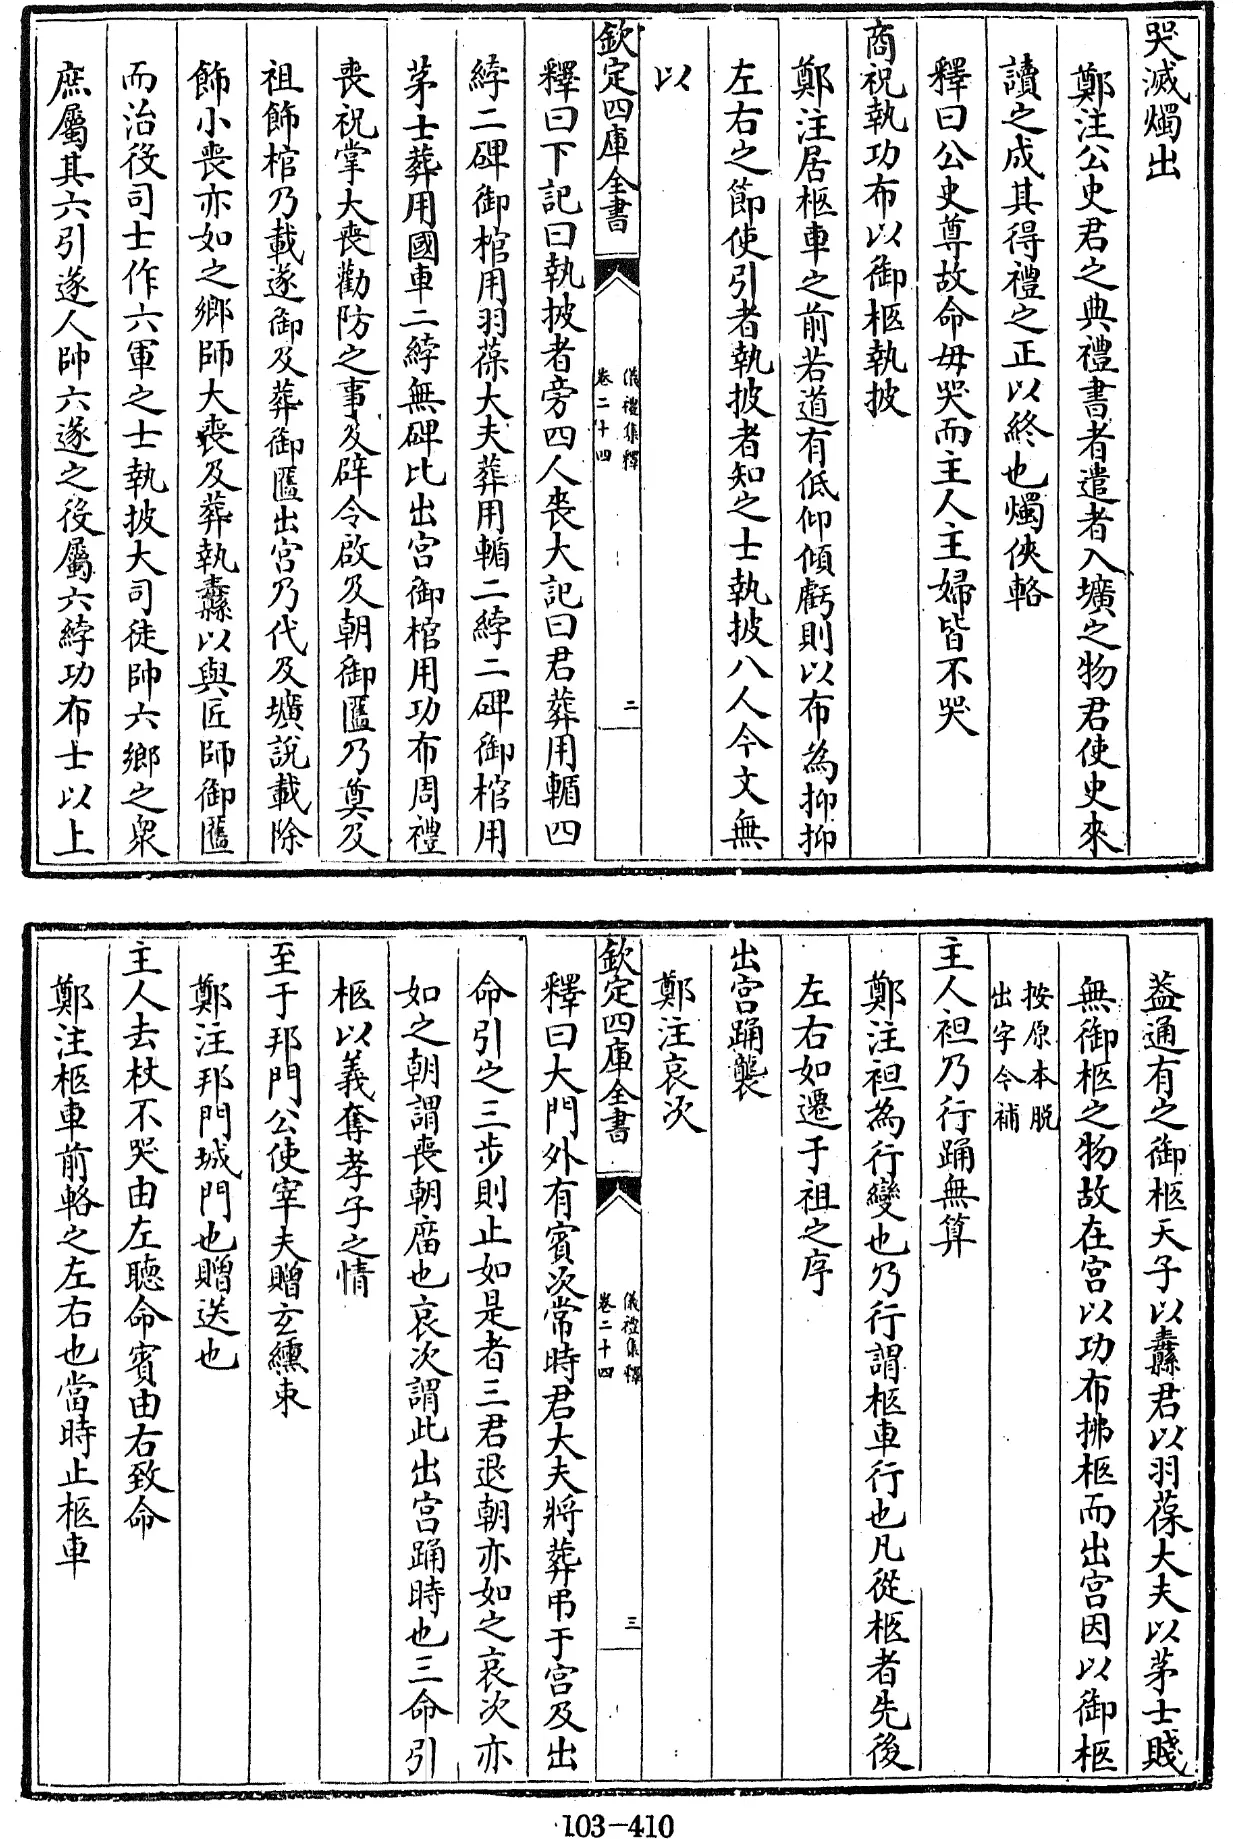 哭滅燭出
鄭注公史君之典禮書者遣者入壙之物君使史來
讀之成其得禮之正以終也燭俠輅
釋曰公史尊故命毋哭而主人主婦皆不哭
商祝執功布以御柩執披
鄭注居柩車之前若道有低仰傾虧則以布為抑抑
左右之節使引者執披者知之士執披八人今文無
以
欽定四庫全書
儀禮集釋
卷二十四
二
釋曰下記曰執披者旁四人喪大記曰君葬用輴四
綍二碑御棺用羽葆大夫葬用輴二綍二碑御棺用
茅士葬用國車二綍無碑比出宮御棺用功布周禮
喪祝掌大喪勸防之事及辟令啟及朝御匶乃奠及
祖飾棺乃載遂御及葬御匶出宮乃代及壙說載除
飾小喪亦如之鄉師大喪及葬執纛以與匠師御匶
而治役司士作六軍之士執披大司徒帥六鄉之衆
庶屬其六引遂人帥六遂之役屬六綍功布士以上
葢通有之御柩天子以纛君以羽葆大夫以茅士賤
無御柩之物故在宮以功布拂柩而出宮因以御柩
按原本脱
出字今補
主人袒乃行踊無算
鄭注袒為行變也乃行謂柩車行也凡從柩者先後
左右如遷于祖之序
出宮踊襲
鄭注哀次
欽定四庫全書
儀禮集釋
卷二十四
三
釋曰大門外有賓次常時君大夫將葬弔于宮及出
命引之三步則止如是者三君退朝亦如之哀次亦
如之朝謂喪朝廟也哀次謂此出宮踊時也三命引
柩以義奪孝子之情
至于邦門公使宰夫贈玄纁束
鄭注邦門城門也贈送也
主人去杖不哭由左聽命賓由右致命
鄭注柩車前輅之左右也當時止柩車
103-410